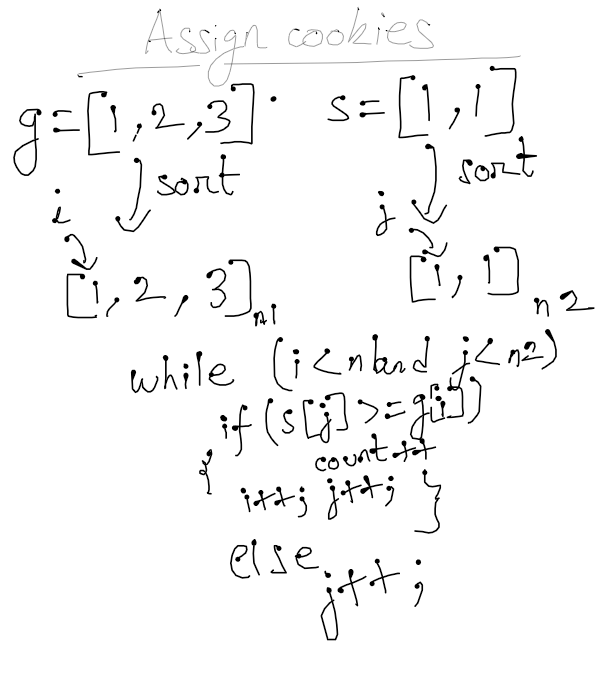 Assign cookies
g=[1,2,3]. s=[1,1]
sort sort
i j
[1,2,3]n1 [1,1]n2
while (i<n1and j<n2)
if (s[j]>=g[i])
{ count++
i++; j++; }
else
j++;